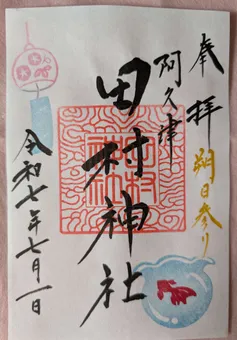 奉拝
朔日参り
阿久津
田村神社
令和七年七月一日